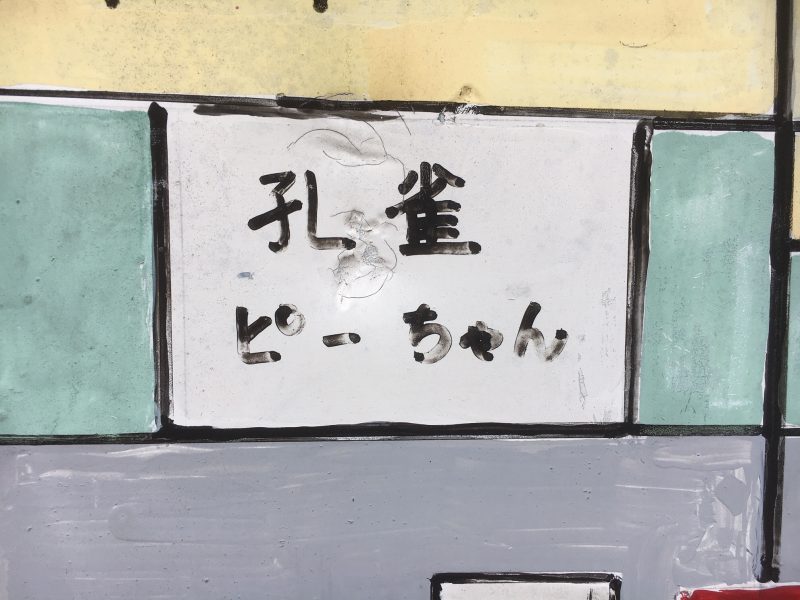 孔雀
ピーちゃん